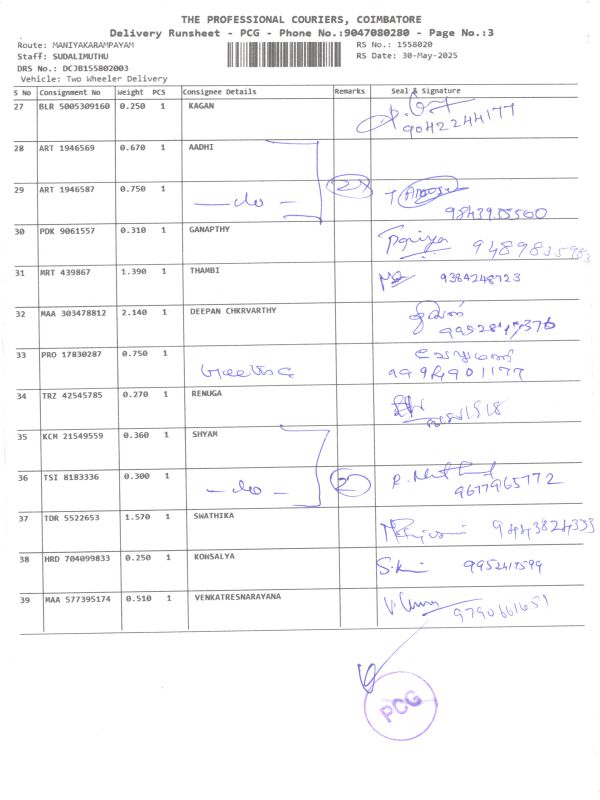 THE PROFESSIONAL COURIERS, COIMBATORE
Delivery Runsheet - PCG - Phone No.:9047080280 - Page No.:3
Route: MANIYAKARAMPAYAM RS No.: 1558020
Staff: SUDALIMUTHU RS Date: 30-May-2025
DRS No.: DCJB155802003
Vehicle: Two Wheeler Delivery
S No Consignment No Weight PCS Consignee Details Remarks Seal & Signature
27 BLR 5005309160 0.250 1 KAGAN
9042244177
28 ART 1946569 0.670 1 AADHI
29 ART 1946587 0.750 1 -do- 2
9843955500
30 PDK 9061557 0.310 1 GANAPTHY
31 MRT 439867 1.390 1 THAMBI 9384248723
32 MAA 303478812 2.140 1 DEEPAN CHKRVARTHY
33 PRO 17830287 0.750 1
34 TRZ 42545785 0.270 1 RENUGA
35 KCM 21549559 0.360 1 SHYAM
36 TSI 8183336 0.300 1 -do- 2
9677965772
37 TDR 5522653 1.570 1 SWATHIKA
38 HRD 704099833 0.250 1 KOWSALYA 9952417599
39 MAA 577395174 0.510 1 VENKATRESNARAYANA
9790661651
PCG